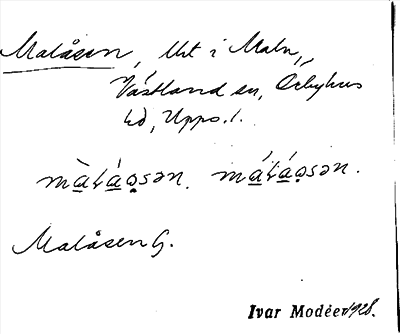 Malåsen, Ut i Maln,
Västland sn, Örbyhus
hd, Upps. l.
màlá̱o̱sən. má̱lá̱o̱sən.
Malåsen G.
Ivar Modéer 1928.